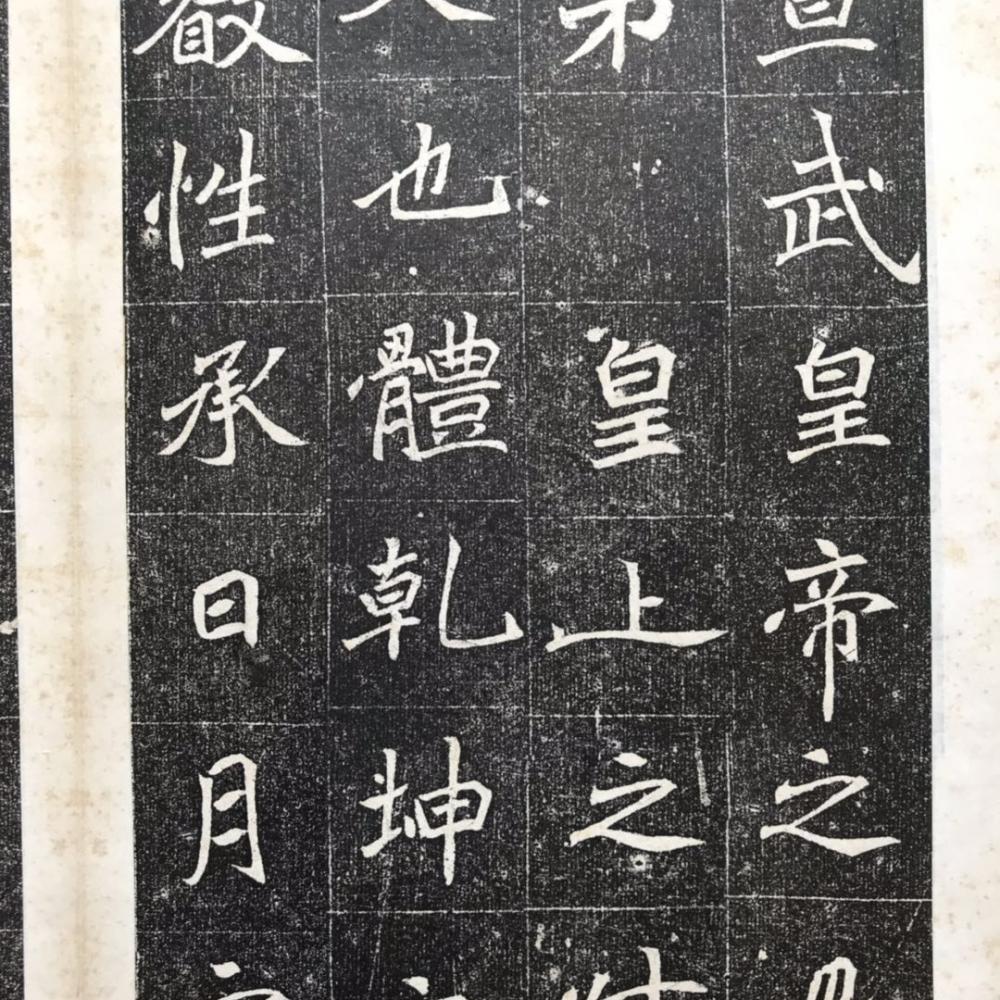 宣武皇帝之
弟皇上之
也體乾坤
叡性承日月